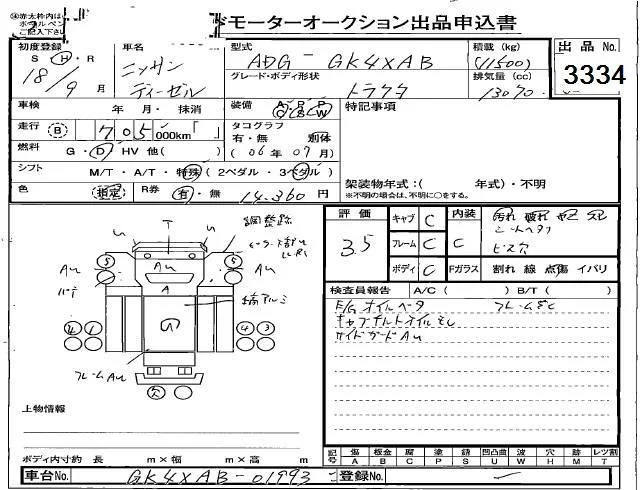 ㊟赤太枠内は
ボールペン
ご記入下さい
モーターオークション出品申込書
初度登録 S・H・R 18/9 月
車名 ニッサン ディーゼル
型式 ADG-GK4XAB
グレード・ボディ形状 トラクタ
積載 (kg) (11500)
排気量 (cc) 13070
出品 No. 3334
車検 年 月・抹消
装備 A P P C S W
特記事項
走行 B 705,000km「 」
タコグラフ 有・無 別体
(06年07月)
燃料 G・D・HV 他( )
シフト M/T・A/T・特殊(2ペダル・3ペダル)
色 指定 R券 有・無 14,360 円
架装物年式:( 年式)・不明
※不明の場合は、不明に〇をする。
評価 3.5
キャブ C
内装 C
汚れ 破れ ヤケ スレ
シートヘタリ
ビス穴
フレーム C
ボディ C
Fガラス 割れ 線 点傷 イバリ
調整跡
AU
A
G
フレームAU
検査員報告 A/C( ) B/T( )
E/G オイルベタ フレームSC
キャブチルトオイルモレ
サイドガードAU
上物情報
ボディ内寸約 長 m×幅 m×高 m
記号 傷A 板金B 腐C 塗P 錆S 凹凸曲U 波W 穴H 跡M レツ割T
車台No. GK4XAB-01993
登録No.